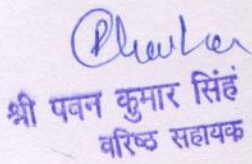 श्री पवन कुमार सिंहं
वरिष्ठ सहायक